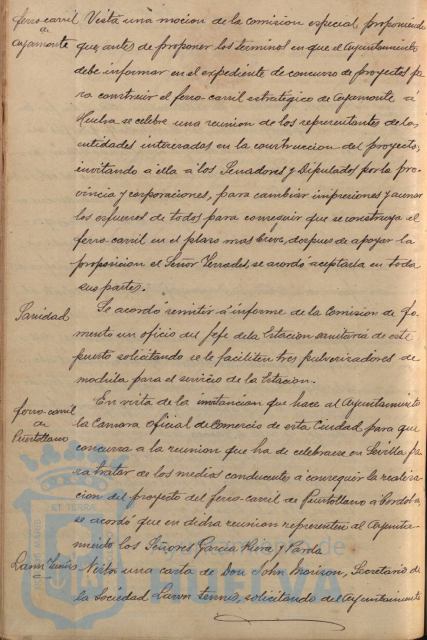 ferro-carril
a
Ayamonte
Vista una mocion de la comision especial proponiendo
que, antes de proponer los terminos en que el Ayuntamiento
debe informar en el expediente de concurso de proyectos pa
ra construir el ferro-carril estratégico de Ayamonte á
Huelva se celebre una reunion de los representantes de las
entidades interesadas en la construccion del proyecto,
invitando á ella á los Senadores y Diputados por la pro-
vincia y corporaciones, para cambiar impresiones y aunar
los esfuerzos de todos para conseguir que se construya el
ferro-carril en el plazo mas breve, despues de apoyar la
proposicion el Señor Terrades, se acordó aceptarla en todas
sus partes.
Sanidad
Se acordó remitir á informe de la Comision de Fo-
mento un oficio del Jefe de la Estacion sanitaria de este
puerto solicitando se le faciliten tres pulverizadores de
mochila para el servicio de la Estacion.
ferro-carril
de
Puertollano
En vista de la instancia que hace al Ayuntamiento
la Cámara oficial de Comercio de esta Ciudad para que
concurra a la reunion que ha de celebrarse en Sevilla pa
ra tratar de los medios conducentes á conseguir la realiza-
cion del proyecto del ferro-carril de Puertollano á Cordoba,
se acordó que en dicha reunion representen al Ayunta-
miento los Señores Garcia y
Lawn Tennis
Vista una carta de Don John Morison, Secretario de
la Sociedad Lawn Tennis, solicitando del Ayuntamiento